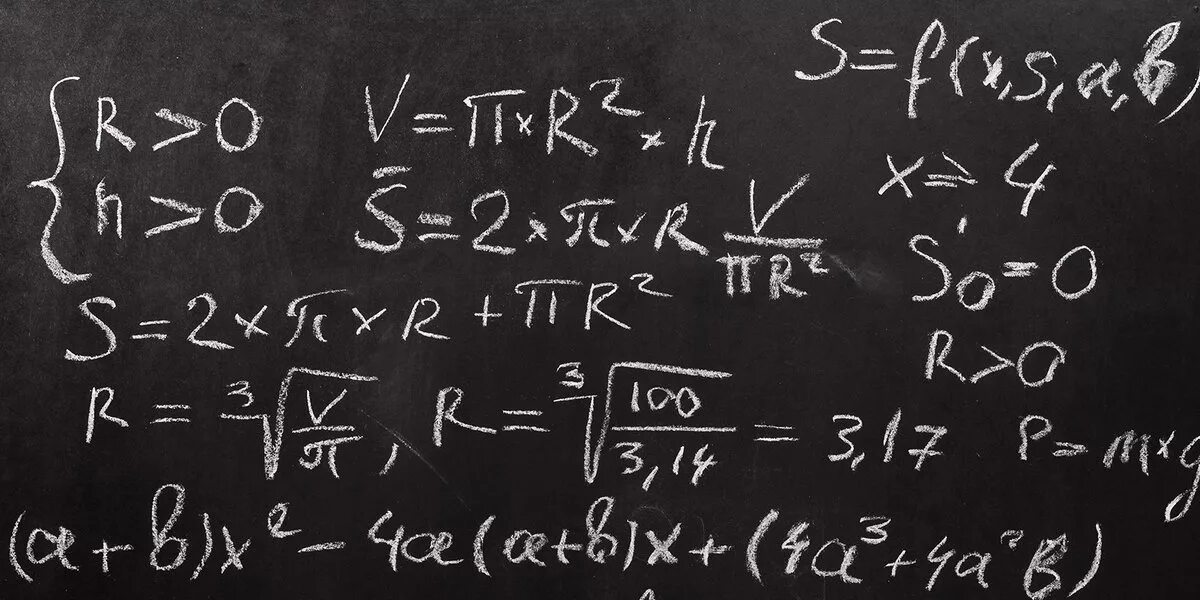 S=f(x,s,a,b)
{R>0 V=π×R²×h
x⩾4
h>0 S̄=2×π×R V/πR²
S'₀=0
S=2×π×R+πR²
R>0
R=³√(V/π), R=³√(100/3,14)=3,17 P=m×g
(a+b)x²-4a(a+b)x+(4a³+4a²b)